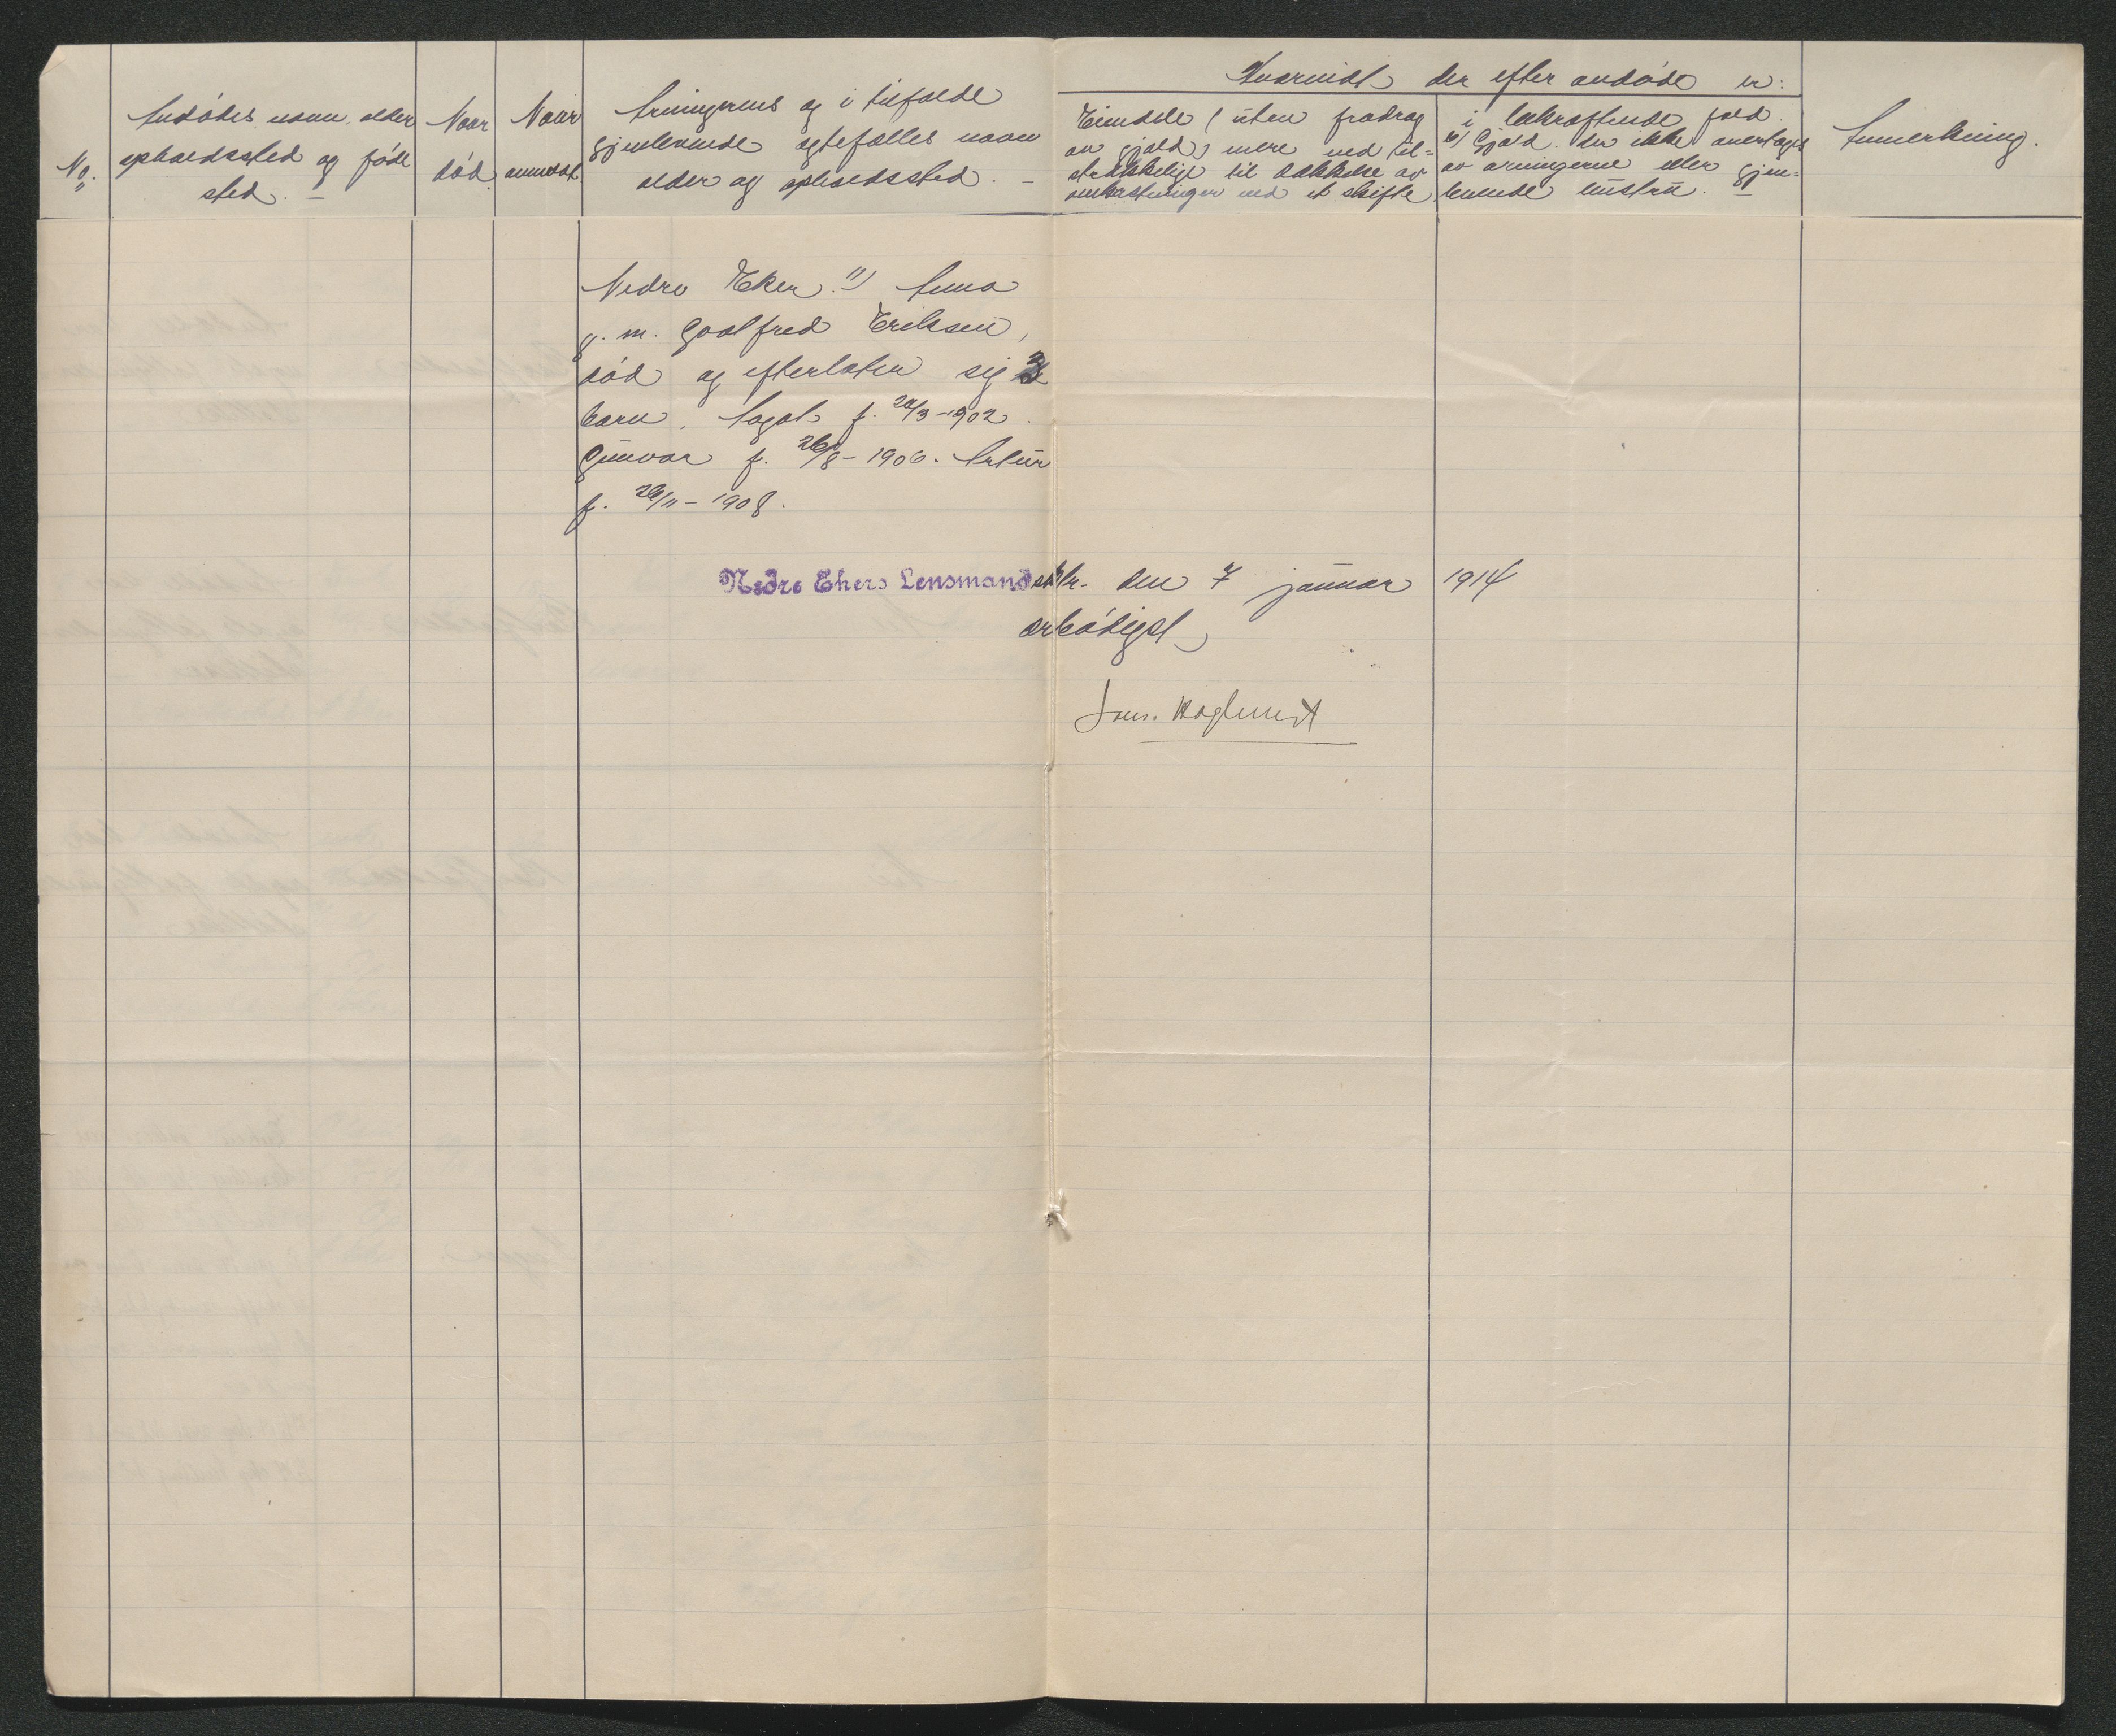 No.
Avdødes navn, alder
opholdssted og føde
sted. –
Naar
død.
Naar
anmeldt.
Arvingernes og i tilfælde
gjenlevende ægtefælles navn
alder og opholdssted. –
Hvorvidt der efter avdøde er:
Eiendele (uten fradrag
av gjæld) mere end til=
strækkelige til dækkelse av
omkostninger ved et skifte
i bekræftende fald.
Gjæld. der ikke overtages
av arvingerne eller gjen=
levende hustru. –
Anmerkning.
Nedre Eker. 11) Anna
g. m. Godtfred Eriksen,
død og efterlater sig 3
barn, Aagot f. /3-1902.
Gunvor f. 26/8-1906. Artur
f. 26/11-1908.
Nedre Ekers Lensmandsktr. den 7 januar 1914
ærbødigst